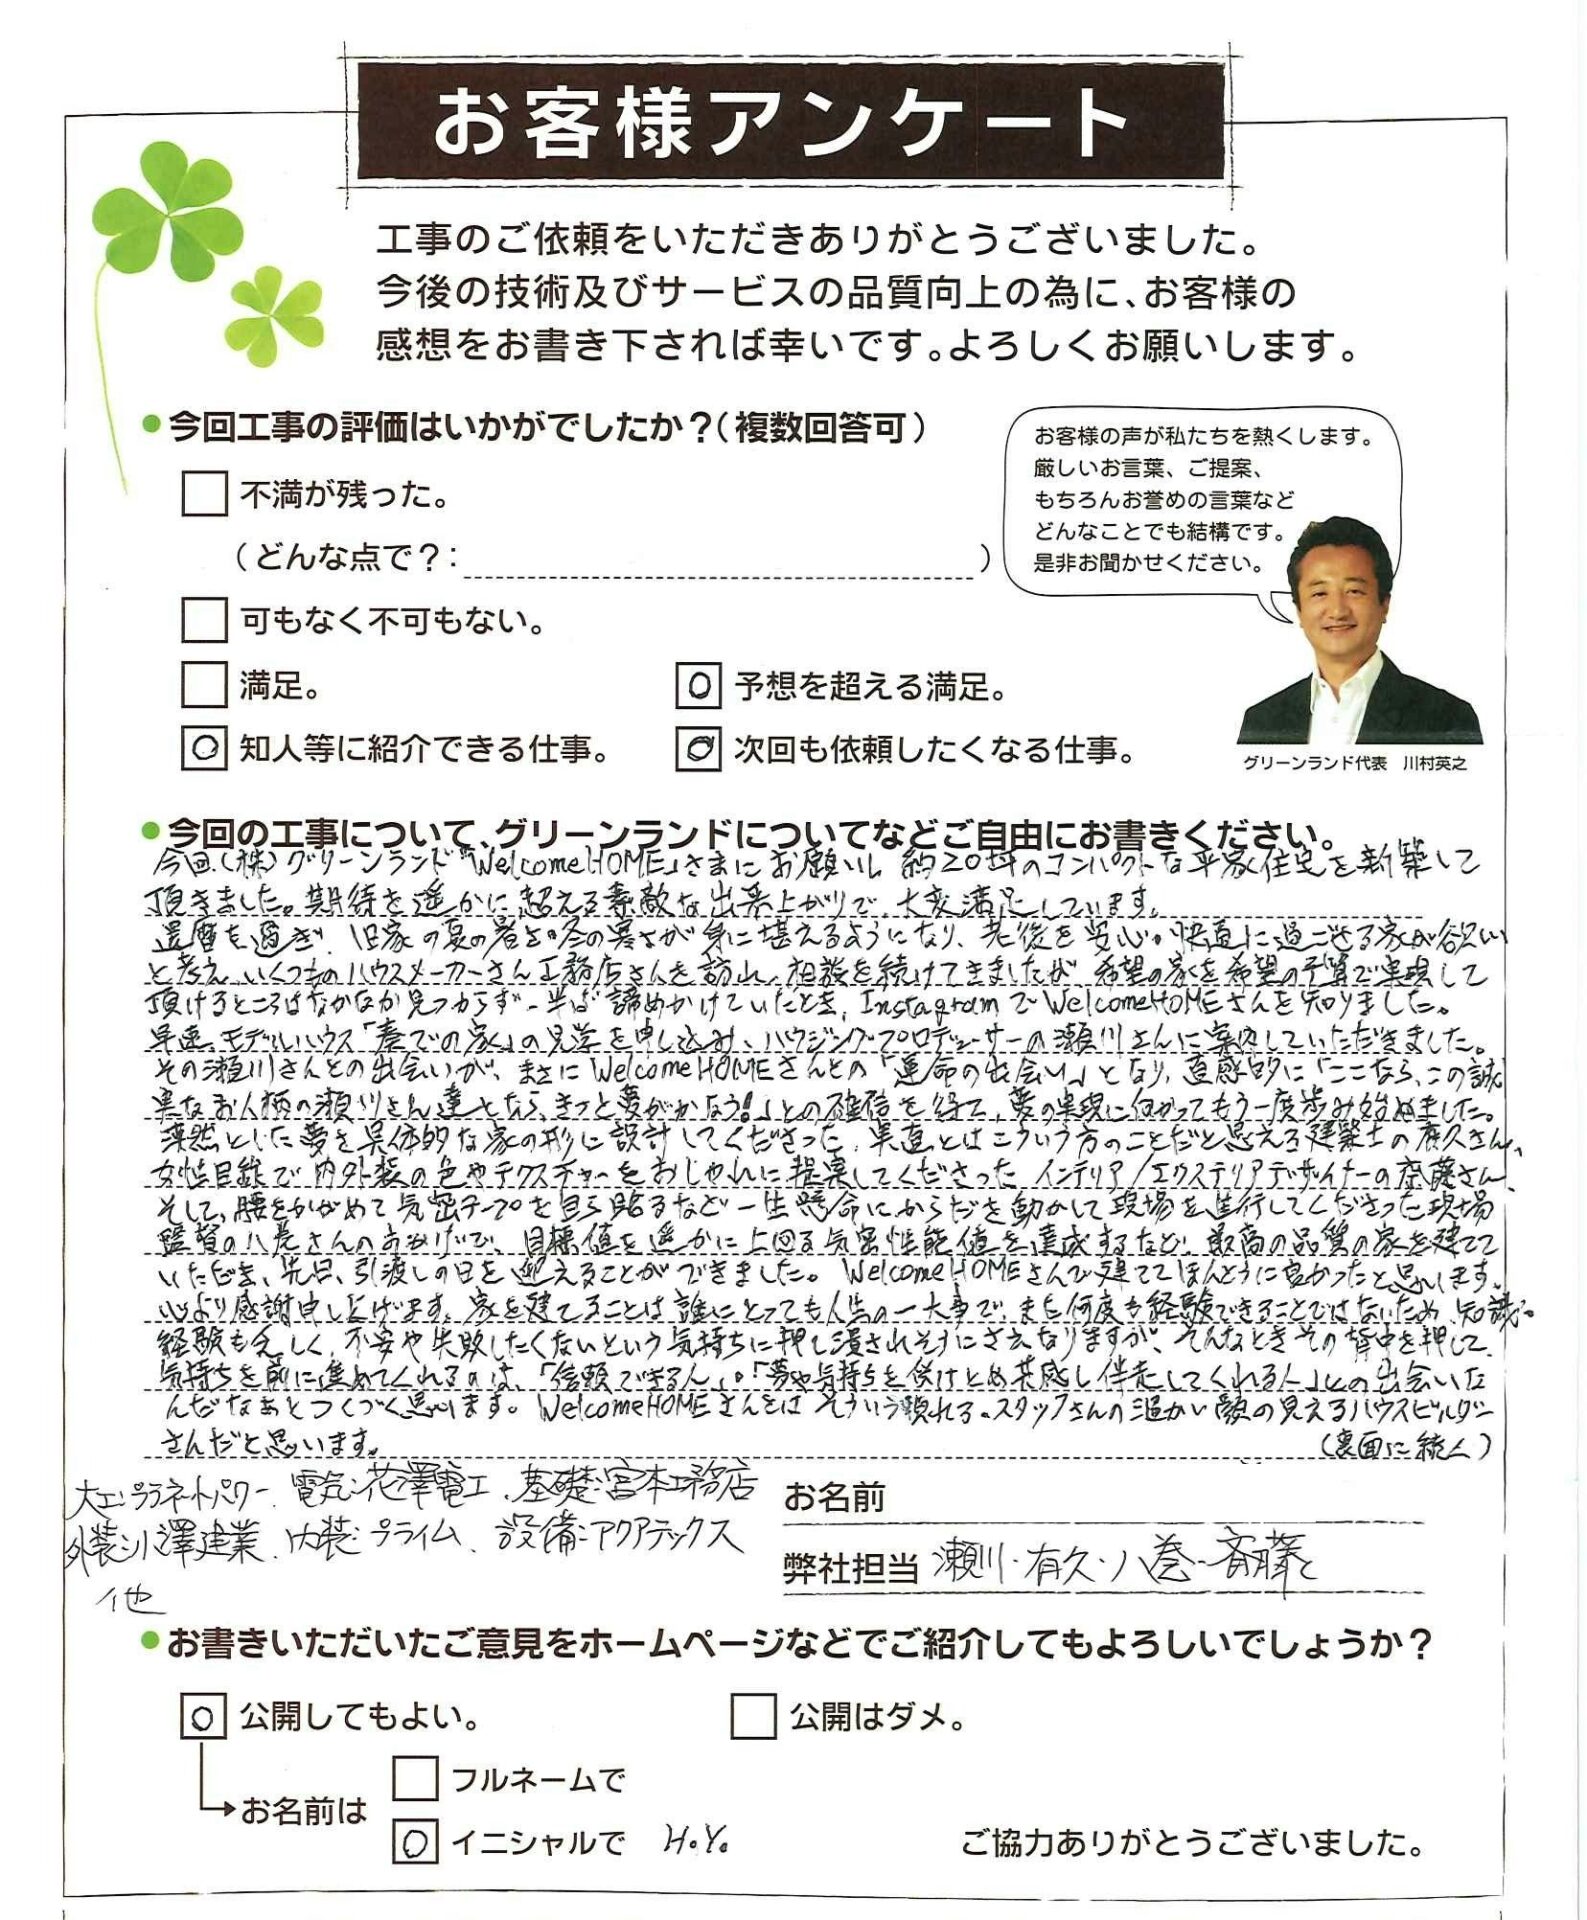 お客様アンケート
工事のご依頼をいただきありがとうございました。
今後の技術及びサービスの品質向上の為に、お客様の
感想をお書き下されば幸いです。よろしくお願いします。
●今回工事の評価はいかがでしたか？（複数回答可）
不満が残った。
（どんな点で？： ）
可もなく不可もない。
満足。
○ 予想を超える満足。
○ 知人等に紹介できる仕事。
○ 次回も依頼したくなる仕事。
お客様の声が私たちを熱くします。
厳しいお言葉、ご提案、
もちろんお誉めの言葉など
どんなことでも結構です。
是非お聞かせください。
グリーンランド代表　川村英之
●今回の工事について、グリーンランドについてなどご自由にお書きください。
今回、(株)グリーンランド「WelcomeHOME」さまにお願いし、約20坪のコンパクトな平家住宅を新築して
頂きました。期待を遥かに超える素敵な出来上がりで、大変満足しています。
還暦を過ぎ、旧家の夏の暑さ・冬の寒さが身に堪えるようになり、老後を安心・快適に過ごせる家が欲しい
と考え、いくつものハウスメーカーさん工務店さんを訪れ、相談を続けてきましたが、希望の家を希望の予算で実現して
頂けるところはなかなか見つからず、半ば諦めかけていたとき、InstagramでWelcomeHOMEさんを知りました。
早速、モデルハウス「奏での家」の見学を申し込み、ハウジングプロデューサーの瀬川さんに案内していただきました。
その瀬川さんとの出会いが、まさにWelcomeHOMEさんとの「運命の出会い」となり、直感的に「ここなら、この誠
実なお人柄の瀬川さん達となら、きっと夢がかなう！」との確信を得て、夢の実現に向かってもう一度歩み始めました。
漠然とした夢を具体的な家の形に設計してくださった、実直とはこういう方のことだと思える建築士の有久さん、
女性目線で内外装の色やテクスチャーをおしゃれに提案してくださったインテリア/エクステリアデザイナーの齋藤さん、
そして、腰をかがめて気密テープを自ら貼るなど一生懸命にからだを動かして現場を進行してくださった現場
監督の八巻さんのおかげで、目標値を遥かに上回る気密性能値を達成するなど、最高の品質の家を建てて
いただき、先日、引渡しの日を迎えることができました。WelcomeHOMEさんで建ててほんとうに良かったと思います。
心より感謝申し上げます。家を建てることは誰にとっても人生の一大事で、また何度も経験できることではないため、知識・
経験も乏しく、不安や失敗したくないという気持ちに押し潰されそうにさえなりますが、そんなときその背中を押して、
気持ちを前に進めてくれるのは、「信頼できる人」・「夢や気持ちを受けとめ共感し伴走してくれる人」との出会いな
んだなあとつくづく思います。WelcomeHOMEさんはそういう頼れる・スタッフさんの温かい顔の見えるハウスビルダー
さんだと思います。
（裏面に続く）
大工:プラネットパワー、電気:花澤電工、基礎:宮本工務店
外装:小澤建業、内装:プライム、設備:アクアテックス
他
お名前
弊社担当 瀬川・有久・八巻・斉藤
●お書きいただいたご意見をホームページなどでご紹介してもよろしいでしょうか？
○ 公開してもよい。
公開はダメ。
お名前は
フルネームで
○ イニシャルで H.Y.
ご協力ありがとうございました。